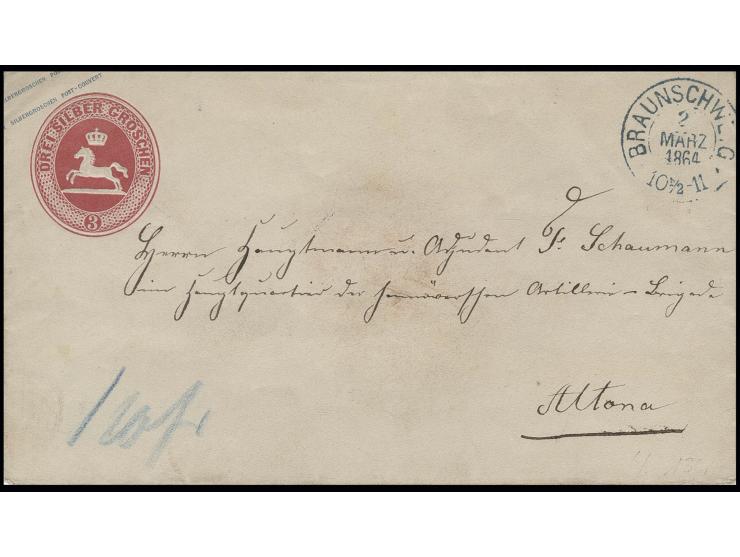 SILBERGROSCHEN POST
SILBERGROSCHEN POST-COUVERT
DREI SILBER GROSCHEN
3
BRAUNSCHWEIG
2
MÄRZ
1864
10½-11
Herrn Hauptmann u. Adjudant Fr. Schaumann
im Hauptquartier der hannöverschen Artillerie-Brigade
Altona